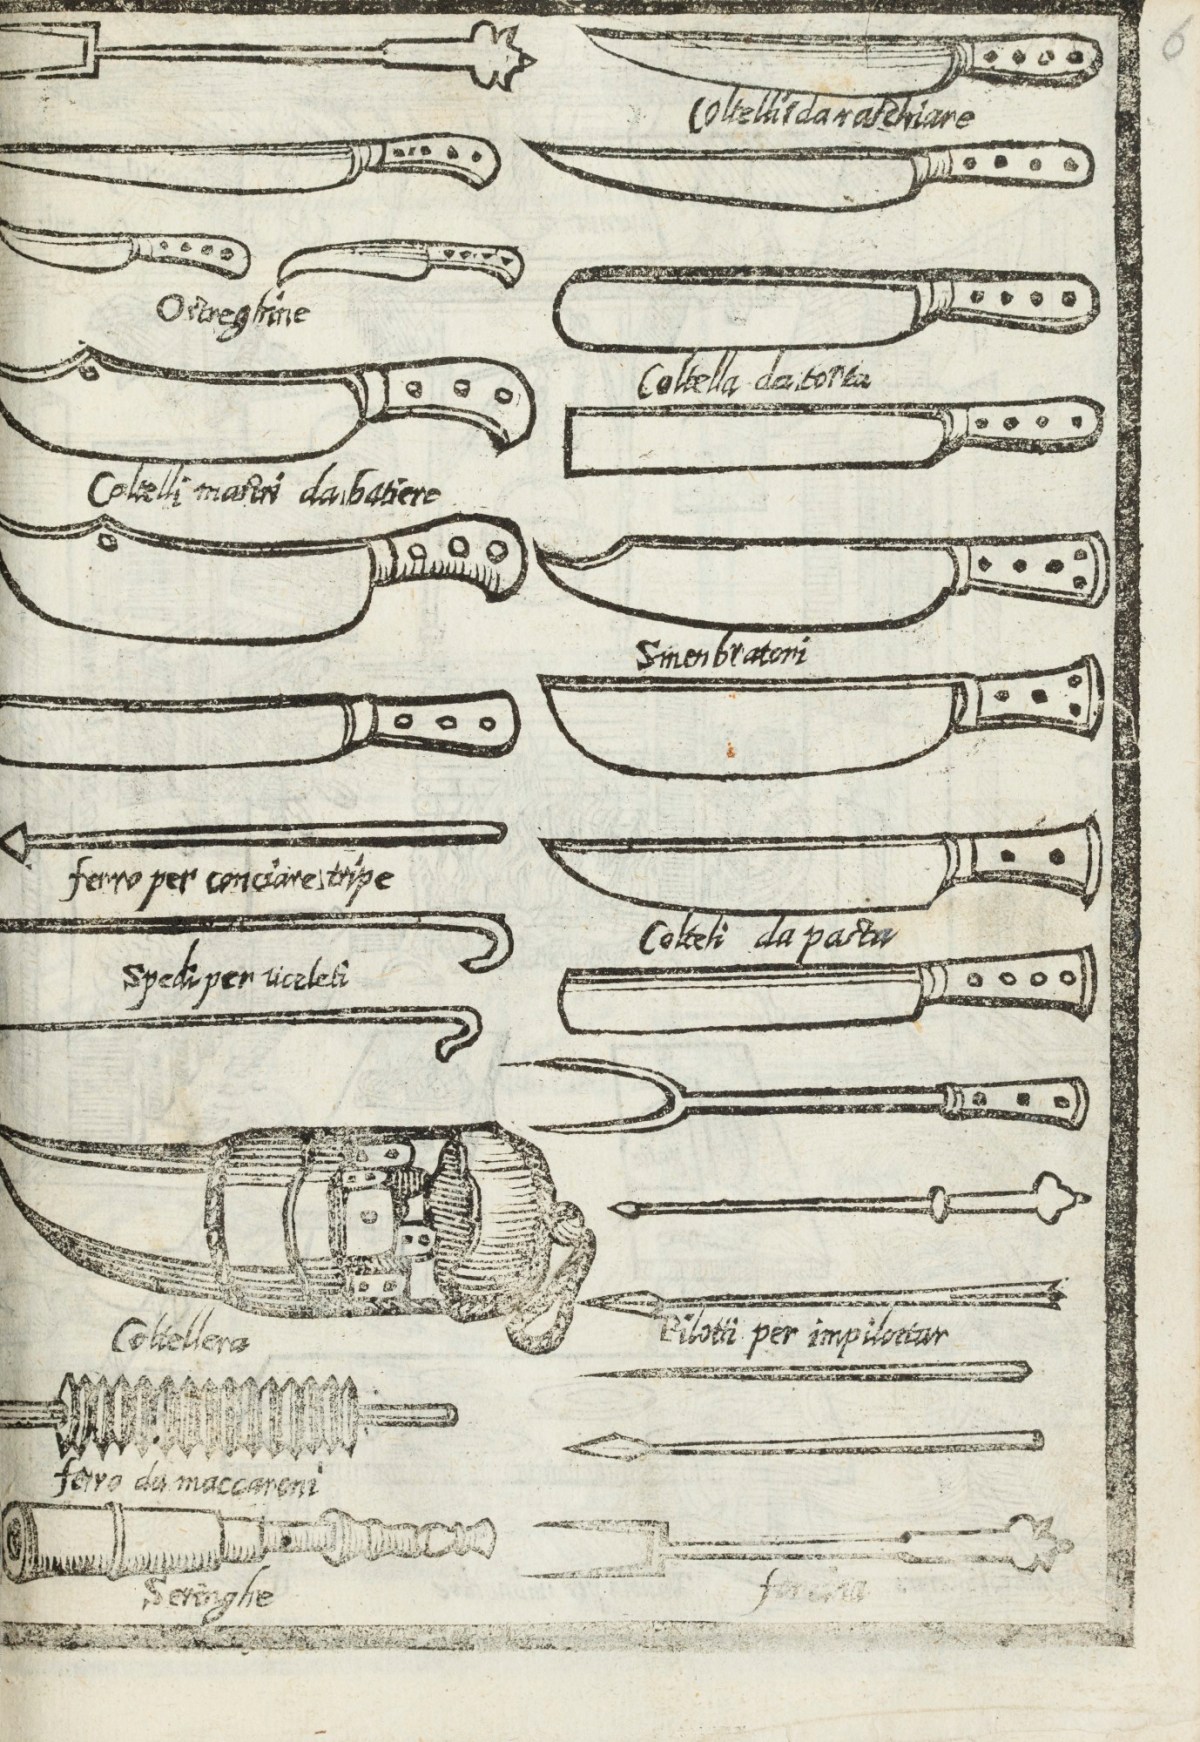 6
Coltelli da raschiare
Ostreghine
Coltella da torta
Coltelli mastri da batiere
Smenbratori
ferro per conciare tripe
Colteli da pasta
Spedi per uceleti
Coltellera
Pilotti per impilottar
ferro da maccaroni
Seringhe